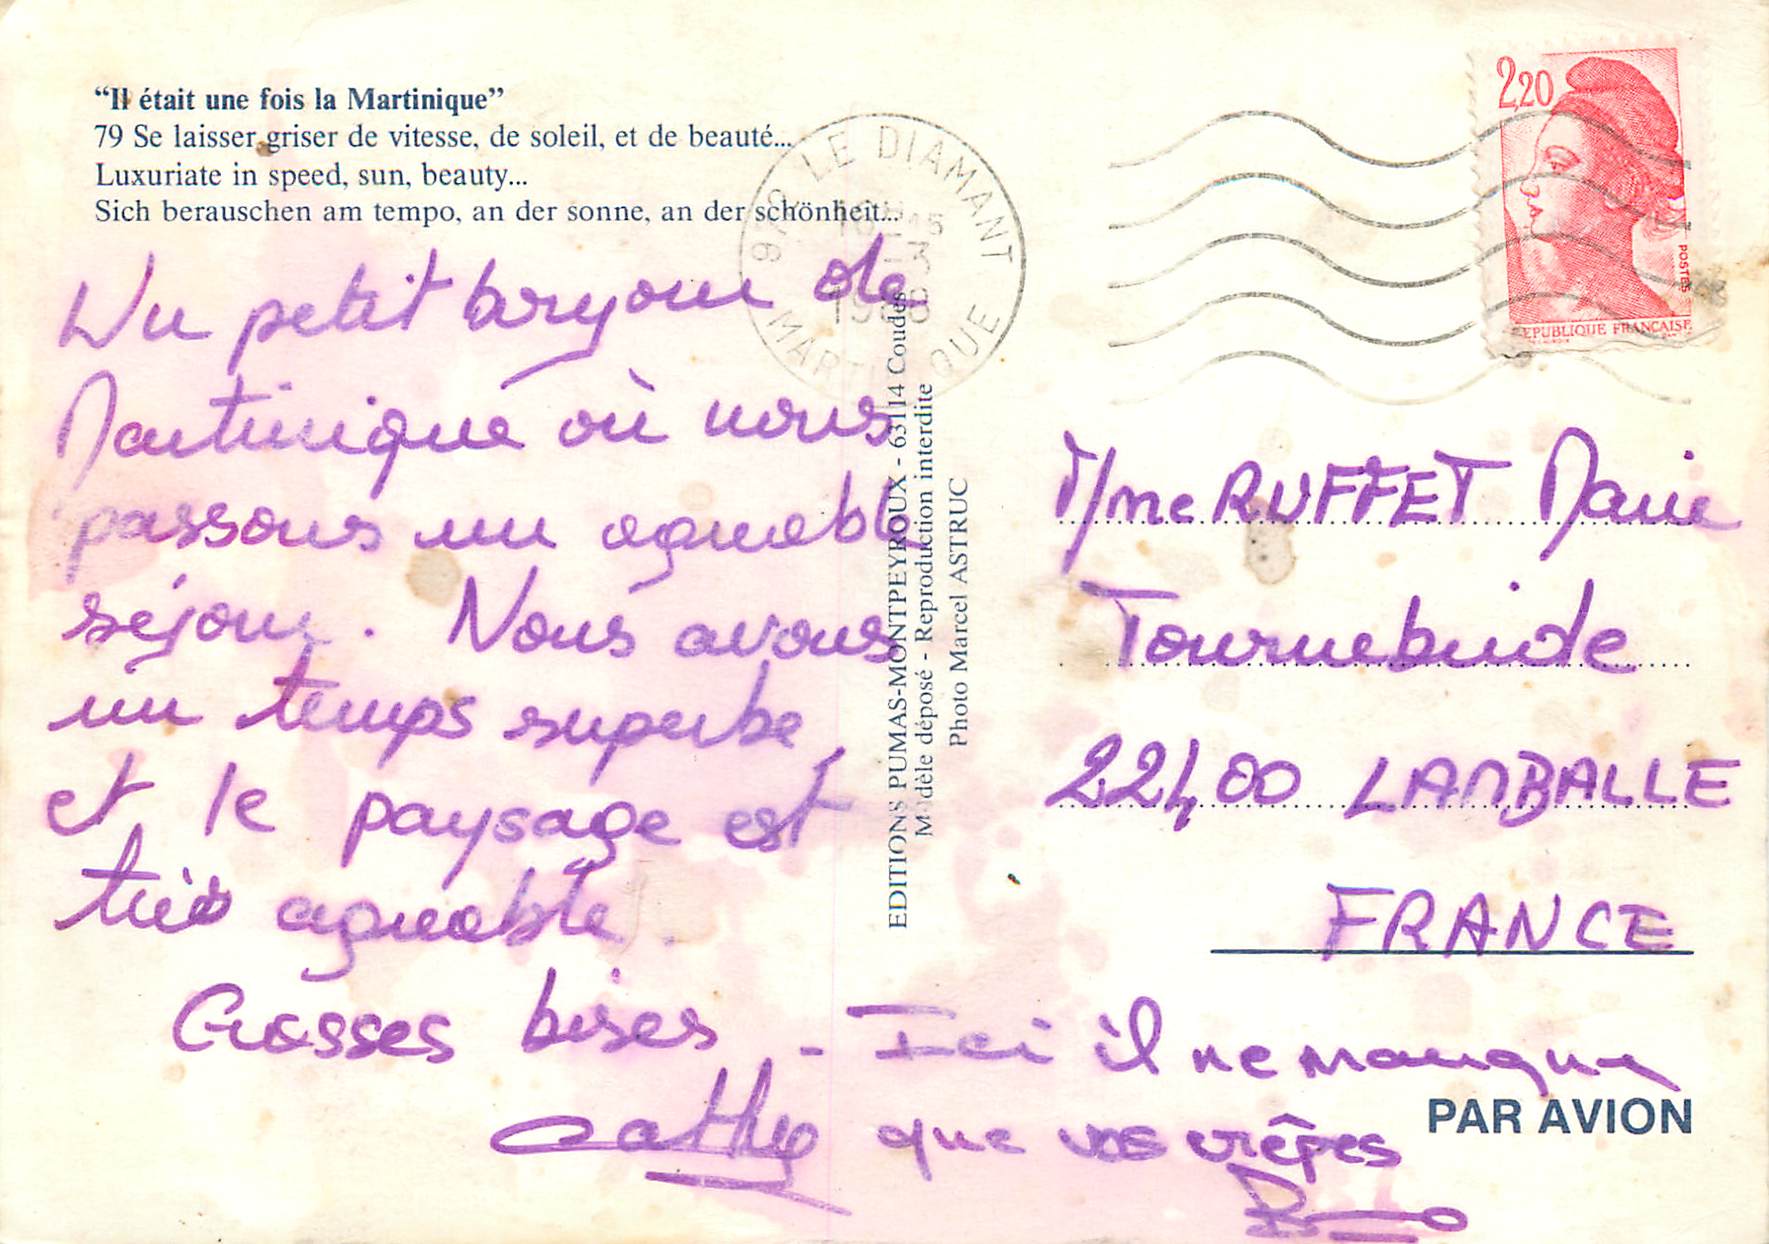 “Il était une fois la Martinique”
79 Se laisser griser de vitesse, de soleil, et de beauté...
Luxuriate in speed, sun, beauty...
Sich berauschen am tempo, an der sonne, an der schönheit...
972 LE DIAMANT
MARTINIQUE
16H15
-3
1988
2,20
POSTES
REPUBLIQUE FRANÇAISE
Un petit bonjour de
Martinique où nous
passons un agréable
séjour. Nous avons
un temps superbe,
et le paysage est
très agréable.
Grosses bises -
Cathy
EDITIONS PUMAS-MONTPEYROUX - 63114 Coudes
Modèle déposé - Reproduction interdite
Photo Marcel ASTRUC
Mme RUFFET Marie
Tournebride
22400 LAMBALLE
FRANCE
Ici il ne manque
que vos crêpes
PAR AVION